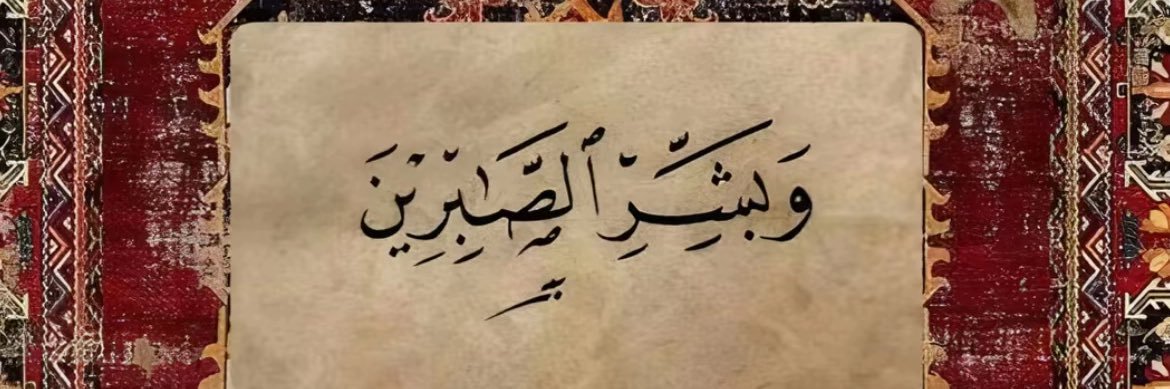 وَبَشِّرِ ٱلصَّـٰبِرِينَ